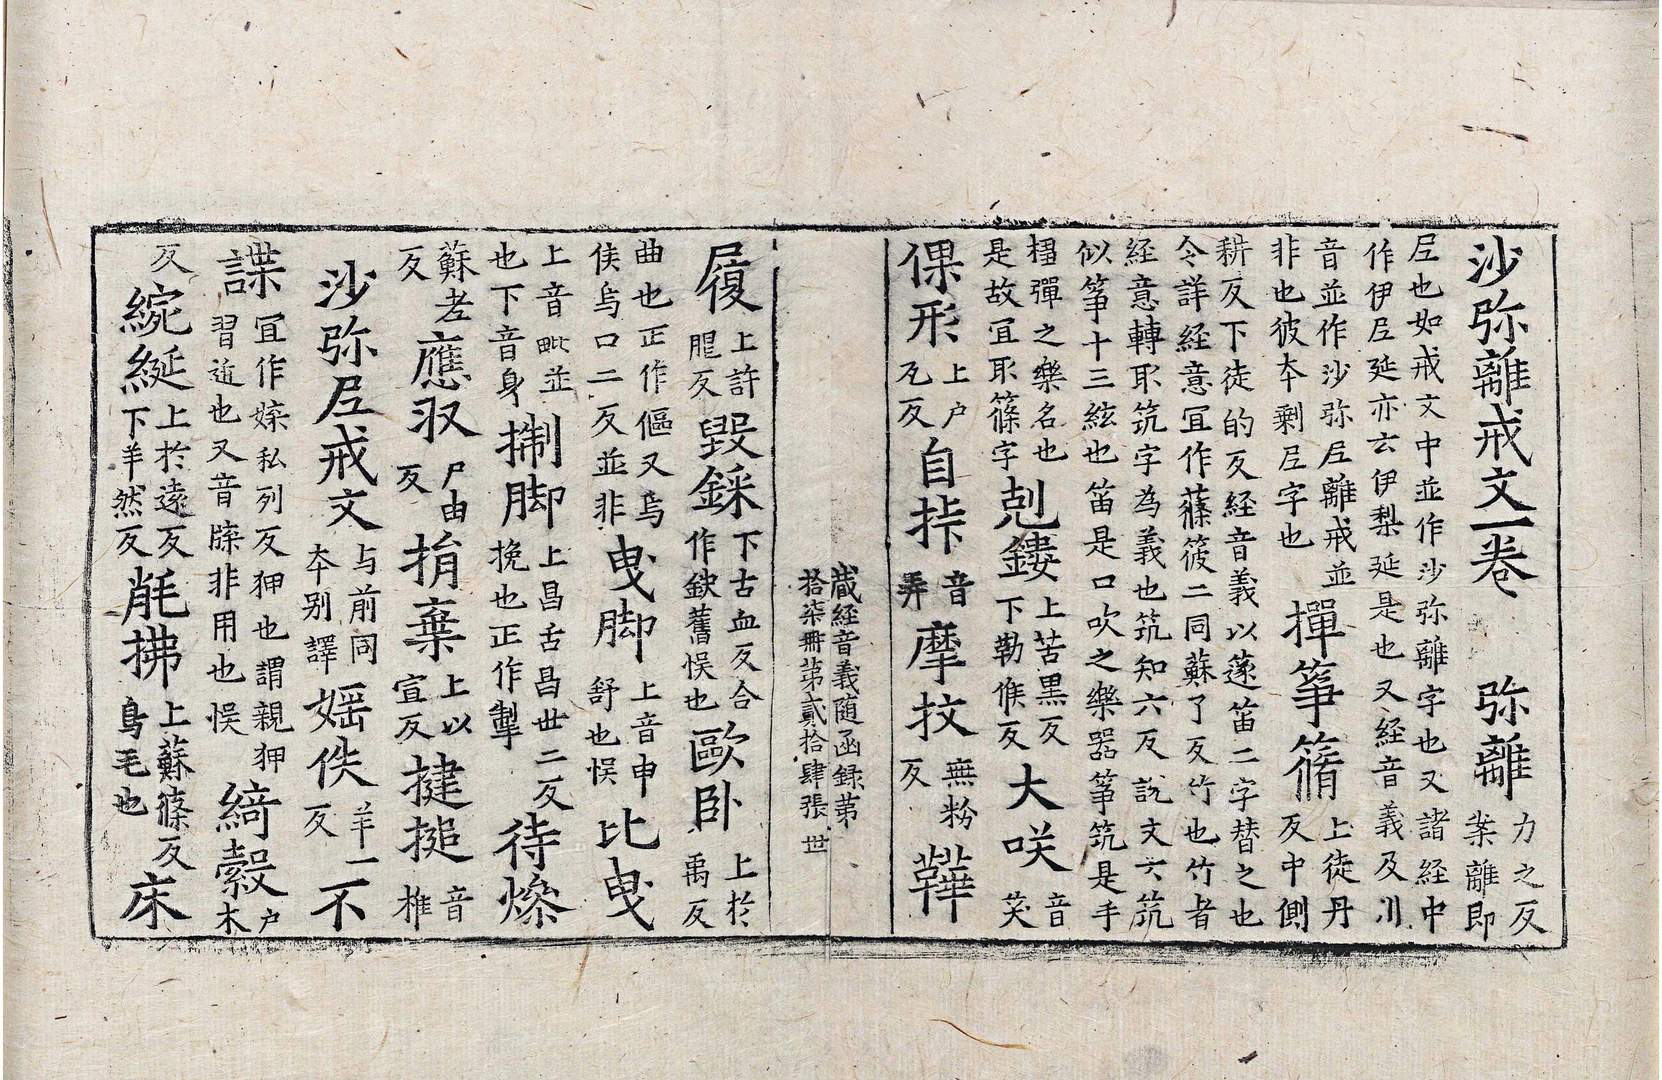 沙弥離戒文一卷　弥離 力之反
業離即
𡰱也如戒文中並作沙弥離字也又諸經中
作伊𡰱延亦云伊梨延是也又經音義及川
音並作沙弥𡰱離戒並
非也彼夲剩𡰱字也
撣筝䈬 上徒丹
反中側
耕反下徒的反經音義以蓫笛二字替之也
今詳經意冝作蓧筱二同蘇了反竹也竹者
經意轉耴筑字為義也筑知六反說文六筑
似筝十三絃也笛是口吹之樂器筝筑是手
楇彈之樂名也
是故冝耴篠字
剋鏤 上苦黒反
下勒候反
大咲 音
笑
倮形 上户
瓦反
自挊 音
弄
摩抆 無粉
反
鞾
藏經音義随函録苐
拾柒冊第貳拾肆張 世
履 上許
反
毀 下古血反合
作鈌舊悮也
歐卧 上於
禹反
曲也正作傴又烏
侯烏口二反並非
曳脚 上音申
舒也悮
比曳
上音毗並
也下音身
掣脚 上昌舌昌世二反
挽也正作掣
待燎
蘇老
反
應収 尸由
反
捐棄 上以
宣反
揵搥 音
椎
沙弥𡰱戒文 与前同
夲别譯
婬佚 羊一
反
不
諜 冝作媟私列反狎也謂親狎
習近也又音牒非用也悮
綺縠 户
木
反
綩綖 上於遠反
下羊然反
毷拂 上蘇篠反
鳥毛也
床